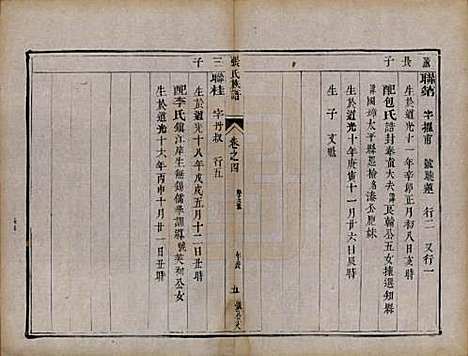 藎長子
聯納 字搢甫 號聽蘅 行二 又行一
生於道光十一年辛卯正月初八日亥時
配包氏誥封奉直大夫 良翰公五女揀選知縣
國璋太平縣恩榜名湊公胞妹
生於道光十年庚寅十一月廿六日辰時
生子 文彪
張氏族譜 卷之四
三子
聯桂 字丹叔 行五
生於道光十八年戊戌五月十二日丑時
配李氏鎮江府生無錫儒學訓導 英初公女
生於道光十六年丙申十月廿一日丑時